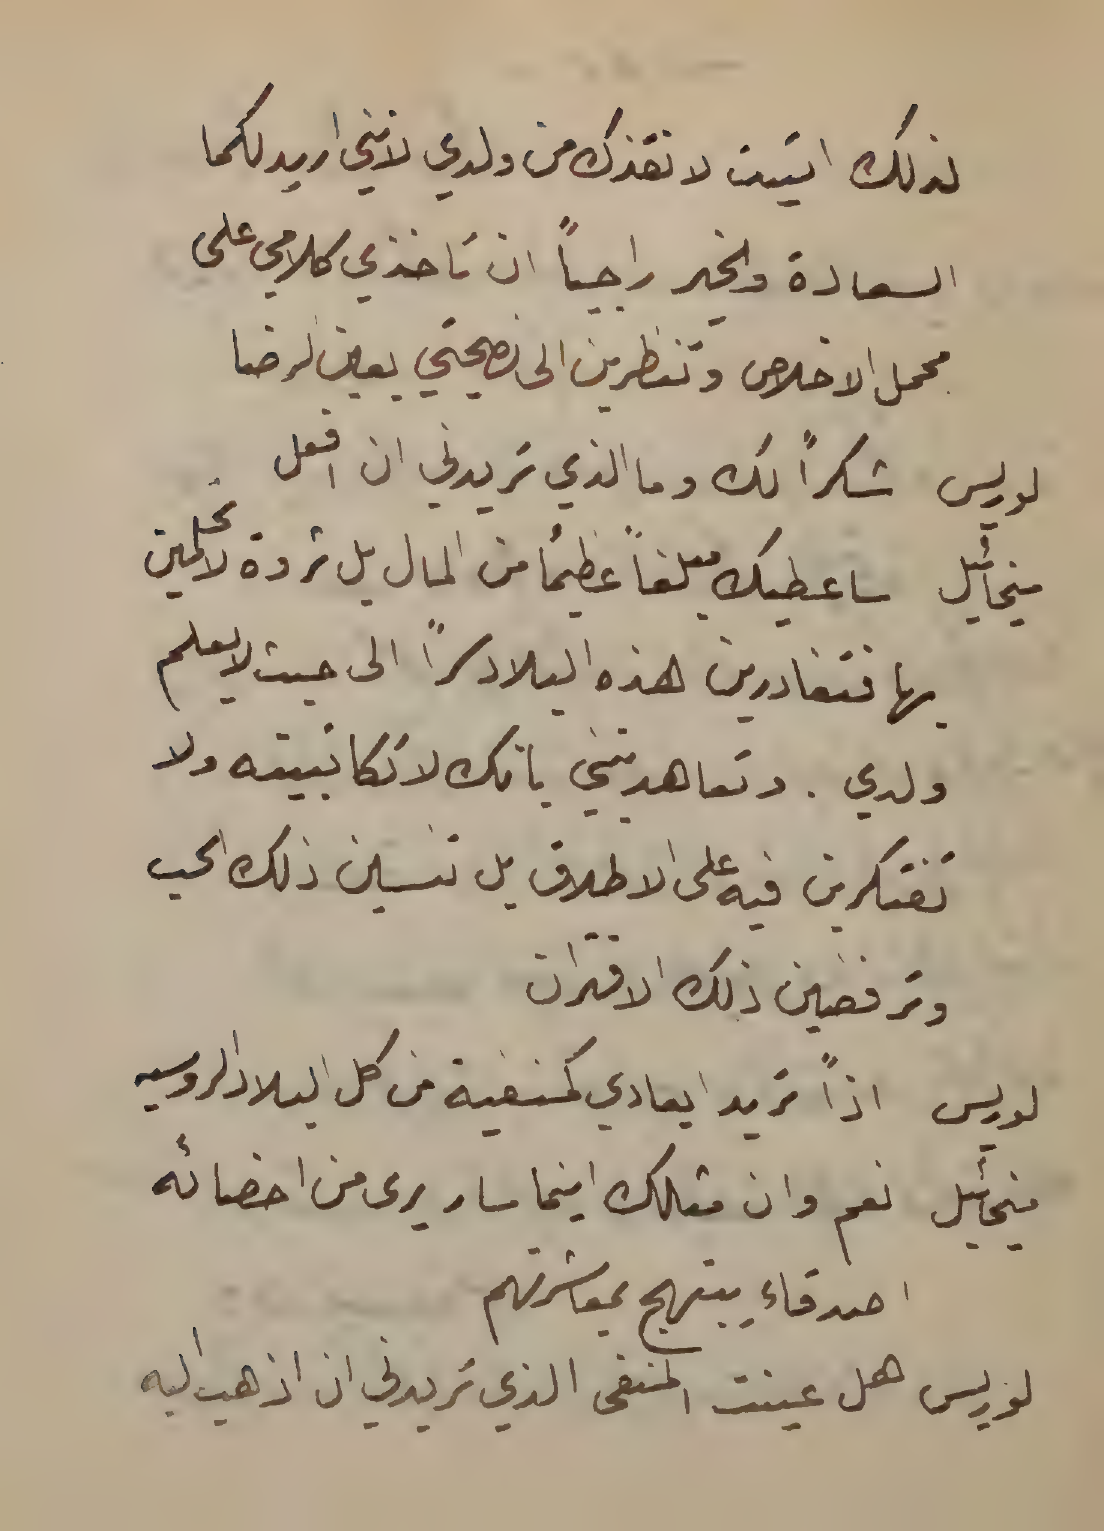 لذلك اتيت لانقذك من ولدي لانني اريد لكما
السعادة والخير راجياً ان تاخذي كلامي على
محمل الاخلاص وتنظرين الى نصيحتي بعين الرضا
لوريس شكراً لك وما الذي تريدني ان افعل
ميخائيل ساعطيك مبلغاً عظيماً من المال بل ثروة لا تحلمين
بها فتغادرين هذه البلاد سراً الى حيث لا يعلم
ولدي . وتعاهدينني بانك لا تكاتبينه ولا
تفتكرين فيه على الاطلاق بل تنسين ذلك الحب
وترفضين ذلك الاقتران
لوريس اذاً تريد ابعادي كمنفية من كل البلاد الروسيه
ميخائيل نعم وان مثلك اينما سار يرى من اخصائه
اصدقاء يبتهج بمعاشرتهم
لوريس هل عينت المنفى الذي تريدني ان اذهب اليه